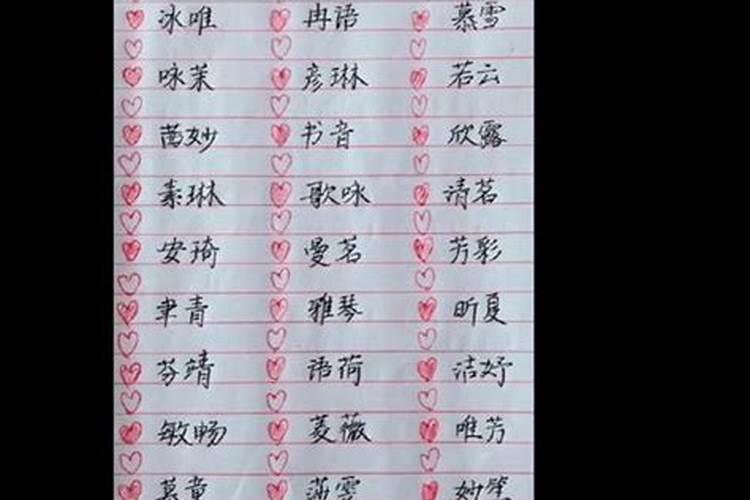 冰唯 冉语 慕雪
咏茉 彦琳 若云
茵妙 书音 欣露
素琳 歌咏 清茗
安琦 曼茗 芳彩
聿青 雅琴 昕夏
芬靖 语荷 洁妤
敏畅 菱薇 唯芳